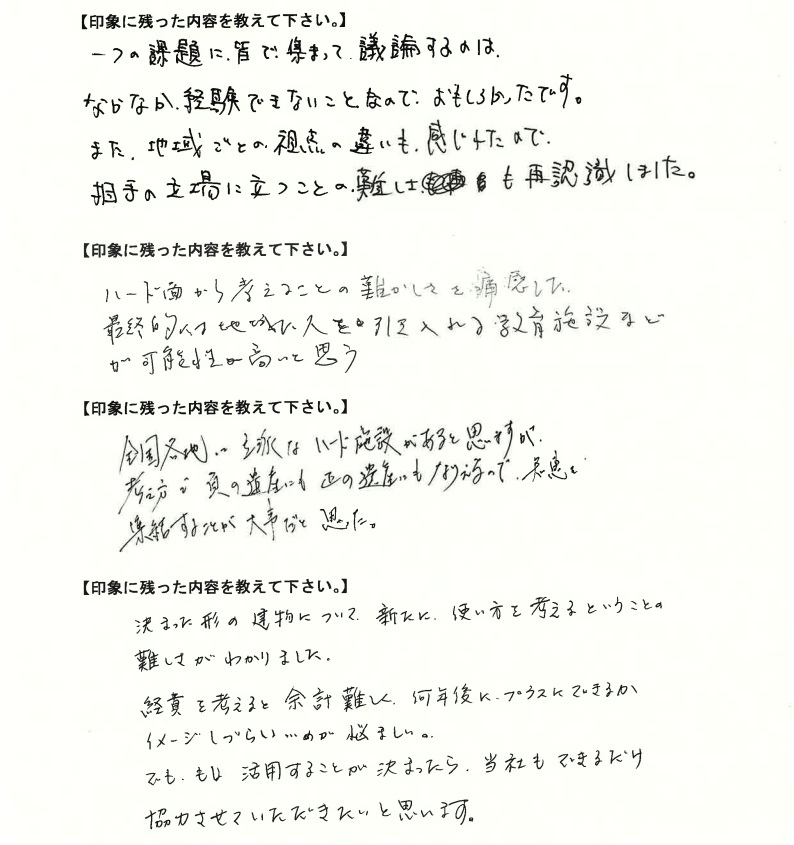 【印象に残った内容を教えて下さい。】
一つの課題に、皆で、集まって、議論するのは、
なかなか、経験できないことなので、おもしろかったです。
また、地域ごとの、視点の違いも、感じれたので、
相手の立場に立つことの、難しさも再認識しました。
【印象に残った内容を教えて下さい。】
ハード面から考えることの難かしさを痛感した、
最終的には地域に人を引き入れる教育施設など
が可能性が高いと思う
【印象に残った内容を教えて下さい。】
全国各地に立派なハード施設があると思いますが、
考え方で負の遺産にも正の遺産にもなりえるので、知恵を
集結することが大事だと思った。
【印象に残った内容を教えて下さい。】
決まった形の建物について、新たに、使い方を考えるということの
難しさがわかりました。
経費を考えると余計難しく、何年後に、プラスにできるか
イメージしづらい…のが悩ましい。
でも、もし活用することが決まったら、当社もできるだけ
協力させていただきたいと思います。